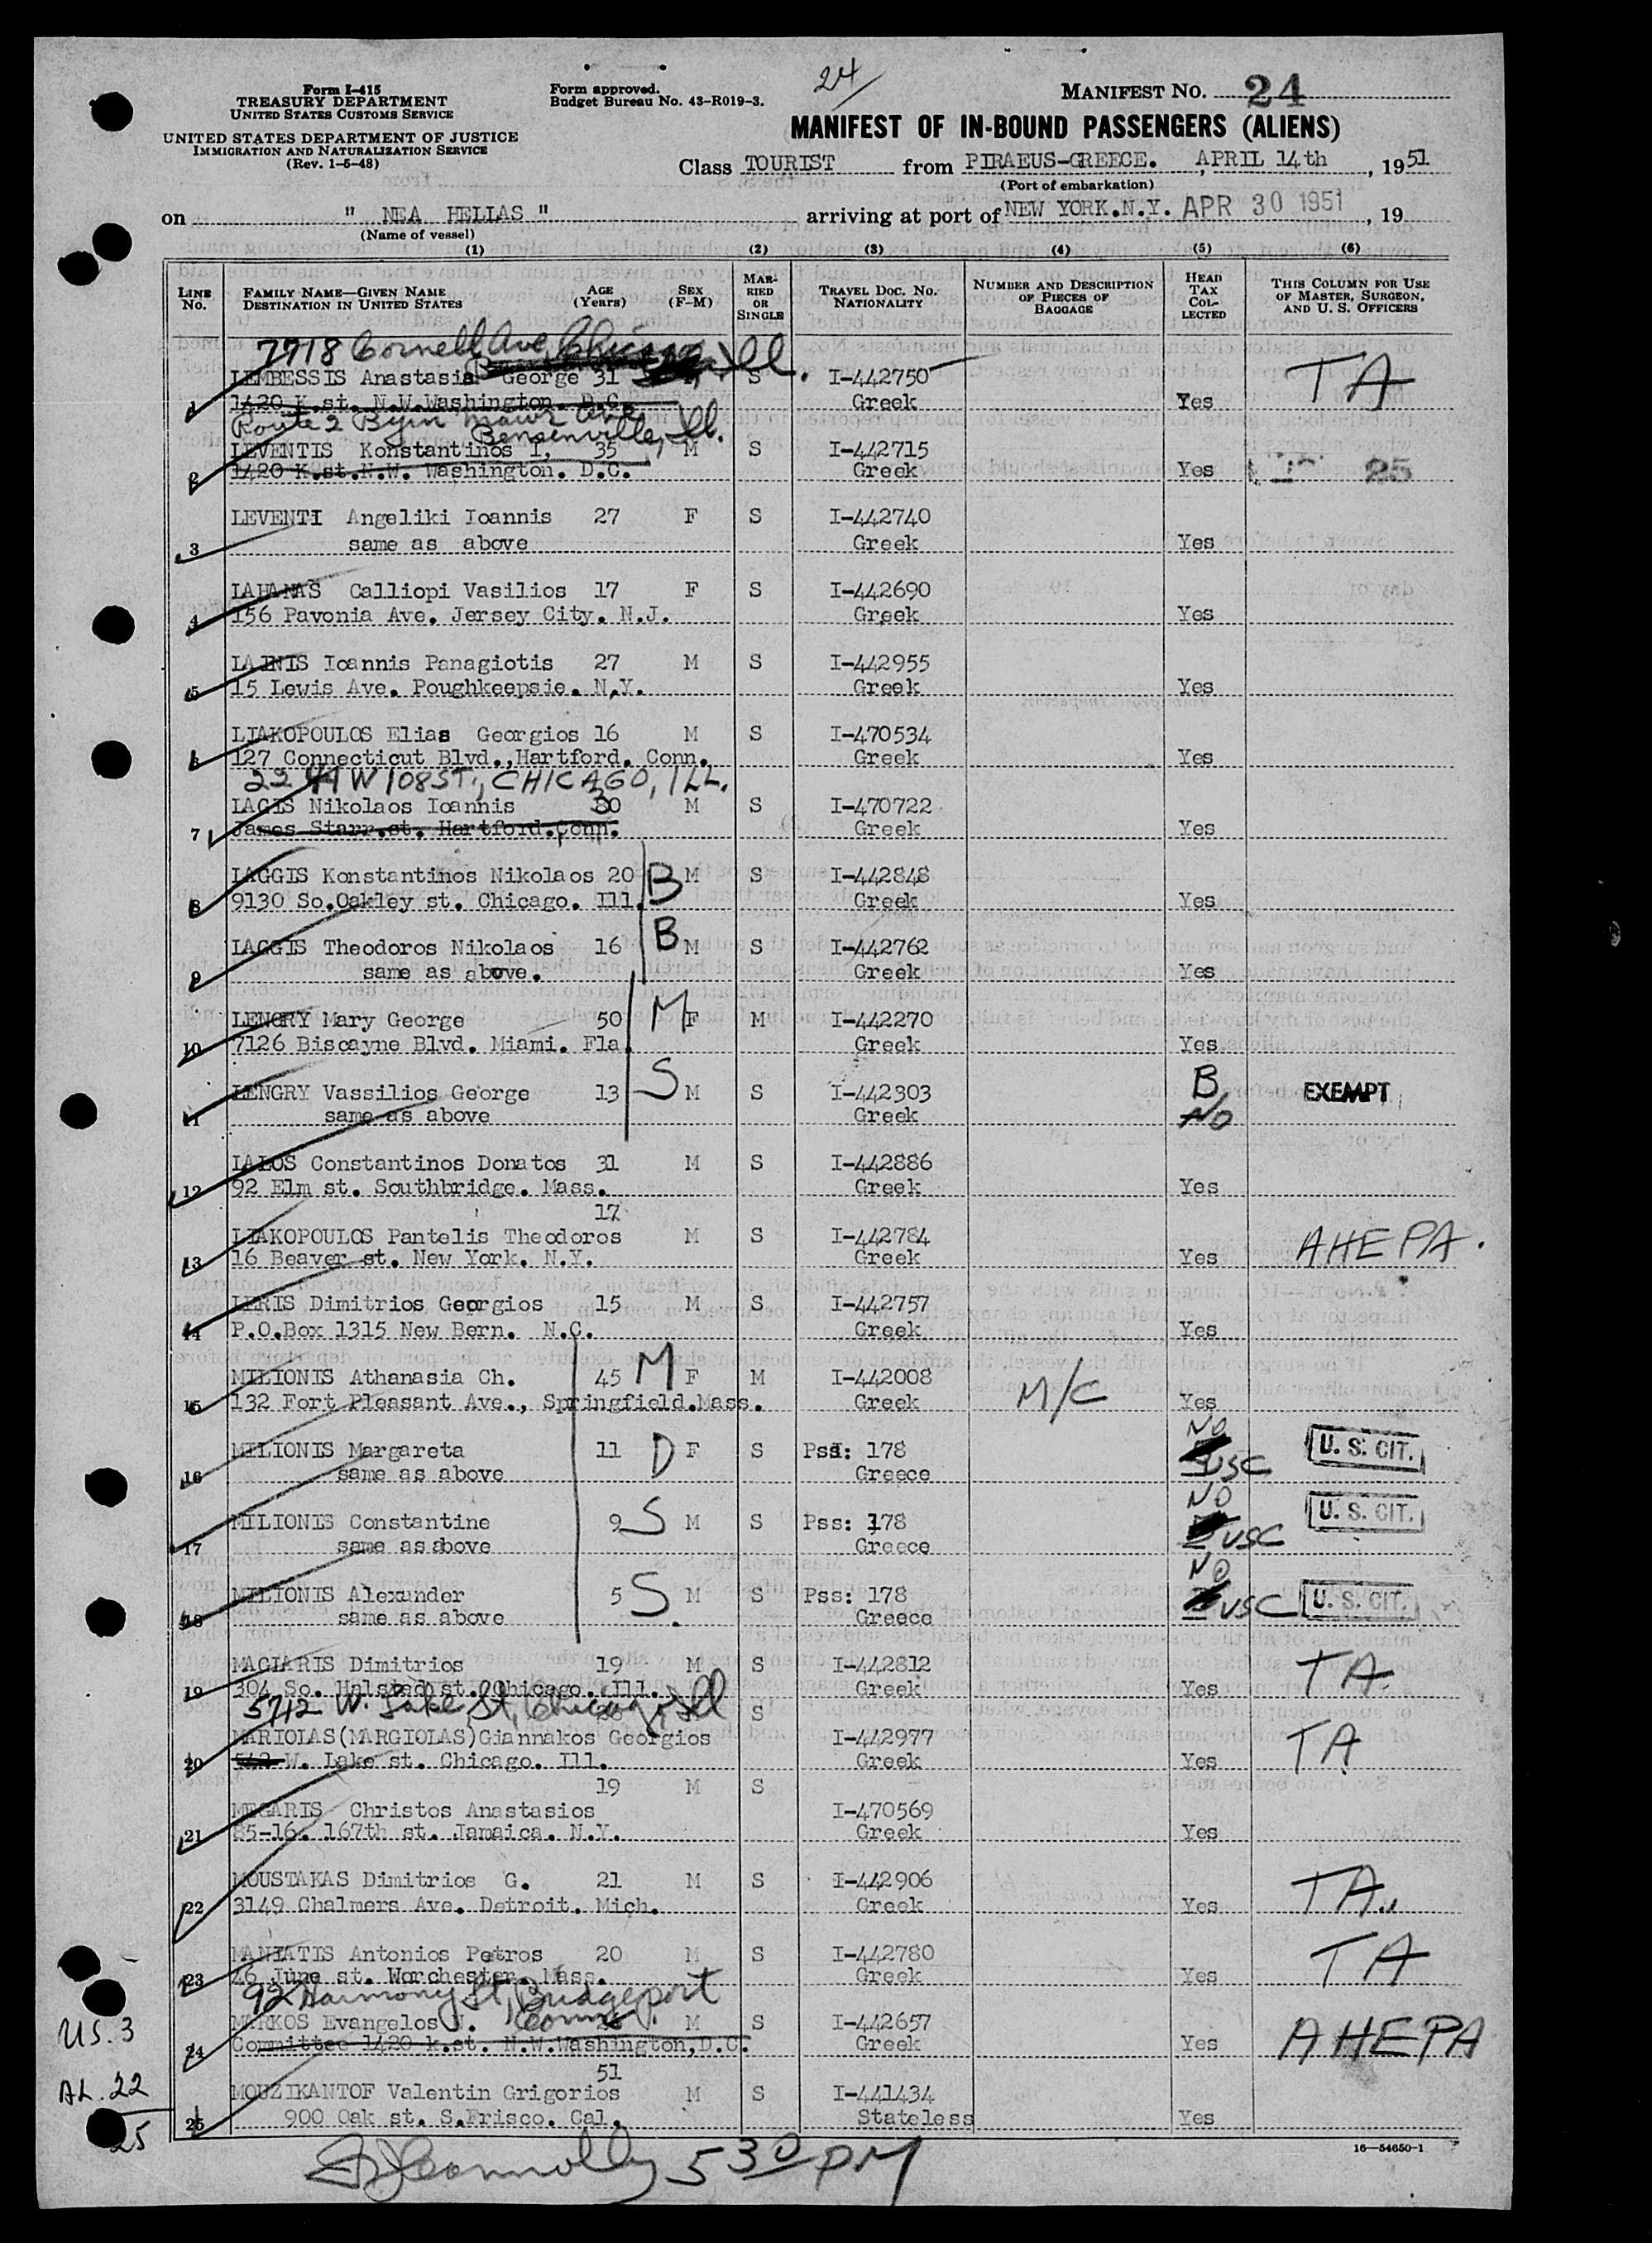 Form I-415
TREASURY DEPARTMENT
UNITED STATES CUSTOMS SERVICE
UNITED STATES DEPARTMENT OF JUSTICE
IMMIGRATION AND NATURALIZATION SERVICE
(Rev. 1-5-48)
Form approved.
Budget Bureau No. 43-R019-3.
24/
MANIFEST NO. 24
MANIFEST OF IN-BOUND PASSENGERS (ALIENS)
Class TOURIST from PIRAEUS-GREECE. , APRIL 14th , 1951
(Port of embarkation)
on " NEA HELLAS " arriving at port of NEW YORK.N.Y. APR 30 1951 , 19
(Name of vessel)
(1) (2) (3) (4) (5) (6)
LINE No. FAMILY NAME—GIVEN NAME DESTINATION IN UNITED STATES AGE (Years) SEX (F-M) MARRIED OR SINGLE TRAVEL DOC. NO. NATIONALITY NUMBER AND DESCRIPTION OF PIECES OF BAGGAGE HEAD TAX COLLECTED THIS COLUMN FOR USE OF MASTER, SURGEON, AND U. S. OFFICERS
7718 Cornell Ave Chicago Ill.
LEMBESSIS Anastasia George 31 S I-442750 TA
1 1420 K.st. N.W.Washington. D.C. Greek Yes
Route 2 Byrn Mawr Ave
Bensenville, Ill.
LEVENTIS Konstantinos I, 35 M S I-442715
2 1420 K.st.N.W. Washington. D.C. Greek Yes 25
LEVENTI Angeliki Ioannis 27 F S I-442740
3 same as above Greek Yes
LAHANAS Calliopi Vasilios 17 F S I-442690
4 156 Pavonia Ave. Jersey City. N.J. Greek Yes
LAINIS Ioannis Panagiotis 27 M S I-442955
5 15 Lewis Ave. Poughkeepsie. N.Y. Greek Yes
LIAKOPOULOS Elias Georgios 16 M S I-470534
6 127 Connecticut Blvd.,Hartford. Conn. Greek Yes
2244 W 108 ST, CHICAGO, ILL.
LAGIS Nikolaos Ioannis 30 M S I-470722
7 James Starr.st. Hartford.Conn. Greek Yes
LAGGIS Konstantinos Nikolaos 20 B M S I-442848
8 9130 So.Oakley st. Chicago. Ill. Greek Yes
LAGGIS Theodoros Nikolaos 16 B M S I-442762
9 same as above. Greek Yes
LENGRY Mary George 50 M F M I-442270
10 7126 Biscayne Blvd. Miami. Fla. Greek Yes
LENGRY Vassilios George 13 S M S I-442303 B EXEMPT
11 same as above Greek No
LALOS Constantinos Donatos 31 M S I-442886
12 92 Elm st. Southbridge. Mass. Greek Yes
17
LIAKOPOULOS Pantelis Theodoros M S I-442784 AHEPA.
13 16 Beaver st. New York. N.Y. Greek Yes
LERIS Dimitrios Georgios 15 M S I-442757
14 P.O.Box 1315 New Bern. N.C. Greek Yes
MILIONIS Athanasia Ch. 45 M F M I-442008 M/C
15 132 Fort Pleasant Ave., Springfield.Mass. Greek Yes
MILIONIS Margareta 11 D F S Pss: 178 NO U. S. CIT.
16 same as above Greece USC
MILIONIS Constantine 9 S M S Pss: 178 NO U. S. CIT.
17 same as above Greece USC
MILIONIS Alexander 5 S. M S Pss: 178 NO U. S. CIT.
18 same as above Greece USC
MAGIARIS Dimitrios 19 M S I-442812 TA.
19 304 So. Halsted st. Chicago. Ill. Greek Yes
5712 W. Lake St, Chicago, Ill S
MARIOLAS(MARGIOLAS)Giannakos Georgios I-442977 TA
20 542 W. Lake st. Chicago. Ill. Greek Yes
19 M S
MEGARIS Christos Anastasios I-470569
21 85-16. 167th st. Jamaica. N.Y. Greek Yes
MOUSTAKAS Dimitrios G. 21 M S I-442906 TA.
22 3149 Chalmers Ave. Detroit. Mich. Greek Yes
MANIATIS Antonios Petros 20 M S I-442780 TA
23 46 June st. Worchester. Mass. Greek Yes
92 Harmony St, Bridgeport
Conn.
MARKOS Evangelos N. 26 M S I-442657 AHEPA
24 Committee 1420 k.st. N.W.Washington,D.C. Greek Yes
51
MOUZIKANTOF Valentin Grigorios M S I-441434
25 900 Oak st. S.Frisco. Cal. Stateless Yes
US. 3
AL. 22
25
16—54650-1
Connolly 5 30 PM